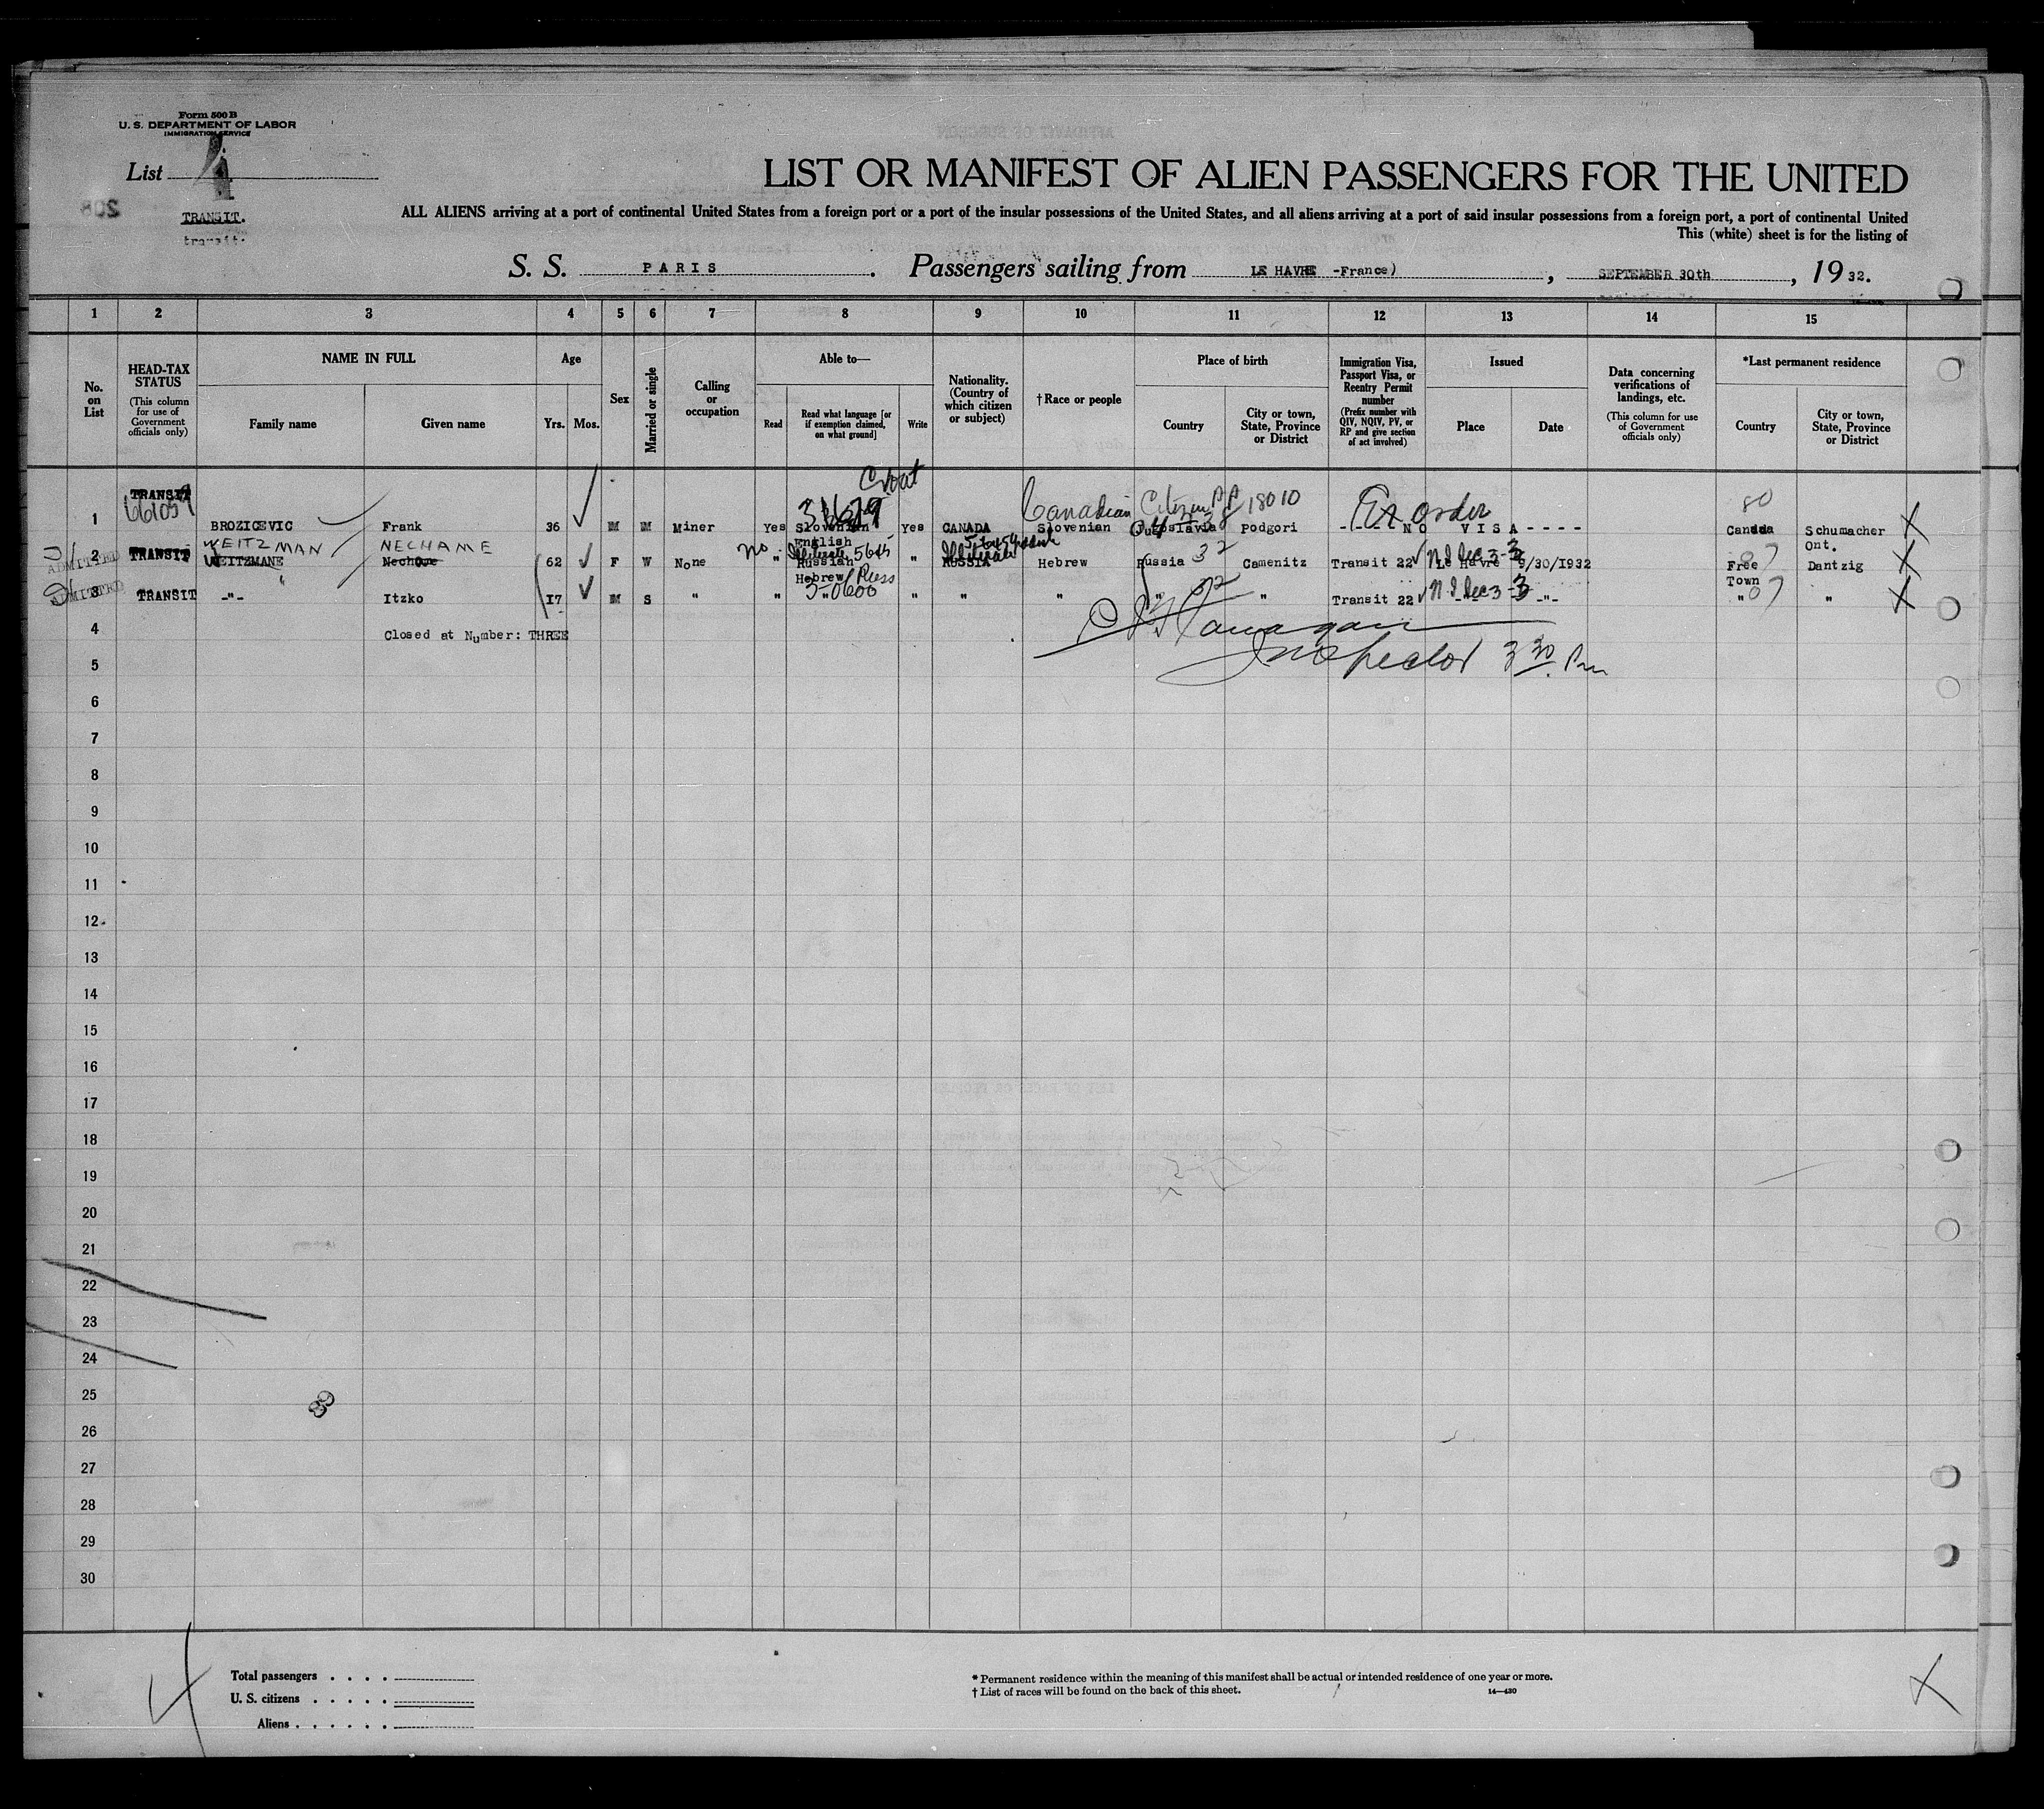 Form 500 B
U. S. DEPARTMENT OF LABOR
IMMIGRATION SERVICE
List 4
208
TRANSIT.
transit.
LIST OR MANIFEST OF ALIEN PASSENGERS FOR THE UNITED
ALL ALIENS arriving at a port of continental United States from a foreign port or a port of the insular possessions of the United States, and all aliens arriving at a port of said insular possessions from a foreign port, a port of continental United
This (white) sheet is for the listing of
S. S. PARIS. Passengers sailing from LE HAVRE -France) , SEPTEMBER 30th , 19 32.
1 2 3 4 5 6 7 8 9 10 11 12 13 14 15
No. on List
HEAD-TAX STATUS
(This column for use of Government officials only)
NAME IN FULL
Family name
Given name
Age
Yrs. Mos.
Sex
Married or single
Calling or occupation
Able to—
Read
Read what language [or if exemption claimed, on what ground]
Write
Nationality. (Country of which citizen or subject)
† Race or people
Place of birth
Country
City or town, State, Province or District
Immigration Visa, Passport Visa, or Reentry Permit number
(Prefix number with QIV, NQIV, PV, or RP and give section of act involved)
Issued
Place
Date
Data concerning verifications of landings, etc.
(This column for use of Government officials only)
*Last permanent residence
Country
City or town, State, Province or District
Croat
TRANSIT
66109
Canadian Citizen PP 18010
Ex order
80
1 BROZICEVIC Frank 36 M M Miner Yes Slovenian Yes CANADA Slovenian Jugoslavia Podgori - - - NO VISA - - - - Canada Schumacher
English
Ont.
WEITZMAN NECHAME
ADMITTED
2 TRANSIT WEITZMANE 62 F W None no " Russian " RUSSIA Hebrew Russia 32 Camenitz Transit 22 Le Havre 9/30/1932 Free Dantzig
Hebrew
Town
ADMITTED
3 TRANSIT -"- Itzko 17 M S " " " " " " " " Transit 22 -"- -"- " "
4 Closed at Number: THREE
Inspector 3 30 Pm
5
6
7
8
9
10
11
12
13
14
15
16
17
18
19
20
21
22
23
24
25
26
27
28
29
30
4
Total passengers . . . .
U. S. citizens . . . . .
Aliens . . . . . .
* Permanent residence within the meaning of this manifest shall be actual or intended residence of one year or more.
† List of races will be found on the back of this sheet.
14—430
X